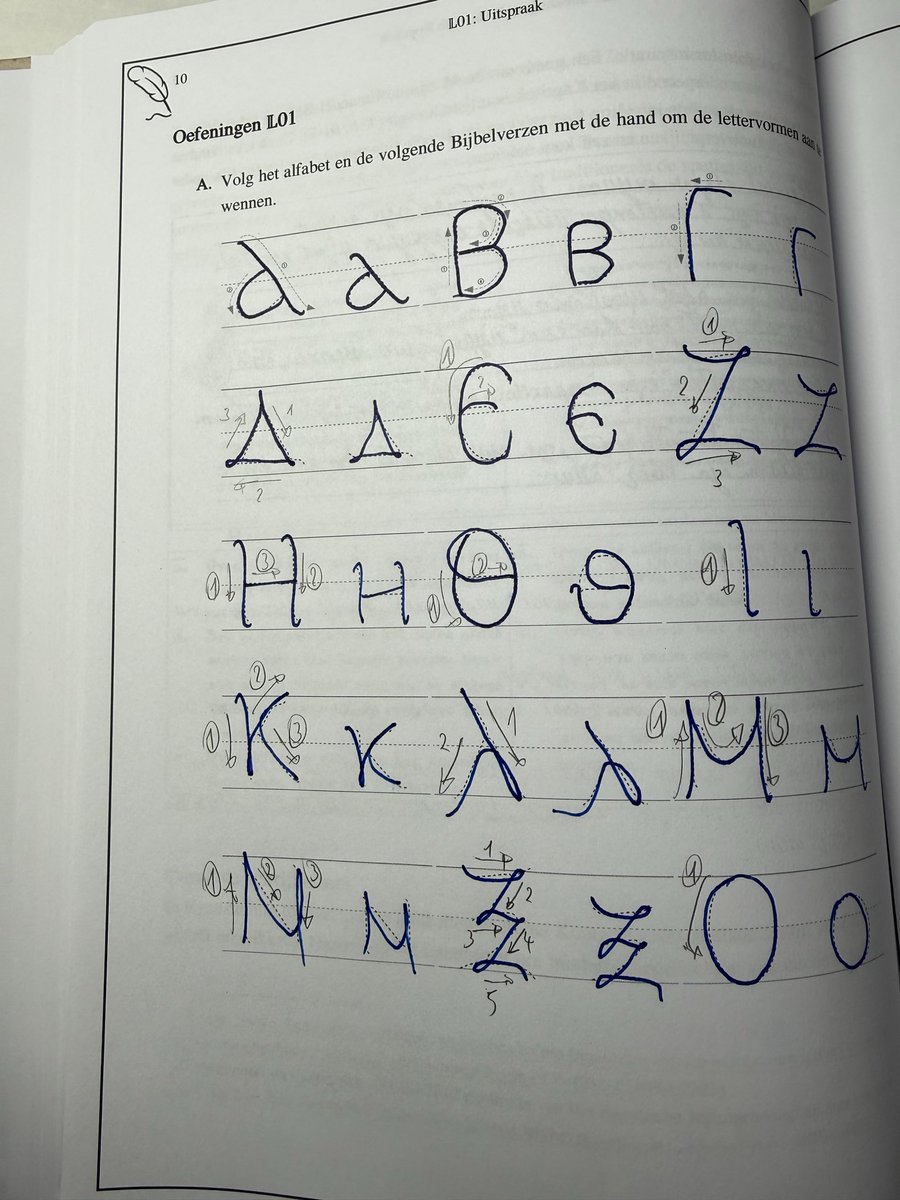 L01: Uitspraak
10
Oefeningen L01
A. Volg het alfabet en de volgende Bijbelverzen met de hand om de lettervormen aan te
wennen.
Α Α Β Β Γ Γ
Δ Δ Ε Ε Ζ Ζ
Η Η Θ Θ Ι Ι
Κ Κ λ λ Μ Μ
Ν Ν Ξ Ξ Ο Ο